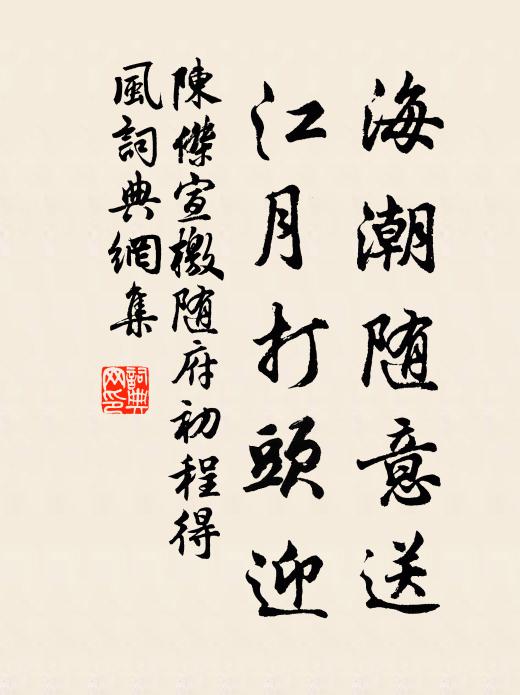 海潮随意送
江月打頭迎
陳傑宣檄随府初程得
風詞典網集
詞典網印